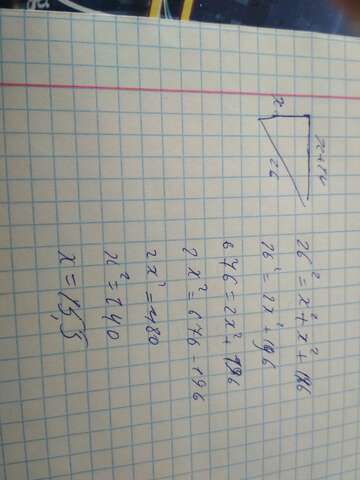 x
x+14
26
26² = x² + x² + 196
26² = 2x² + 196
676 = 2x² + 196
2x² = 676 - 196
2x² = 480
x² = 240
x = 15,5